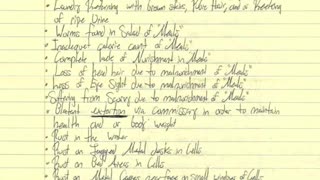 • Laundry Returning with brown stains, Pubic Hair, and a Reeking
of ripe Urine
• Worms found in Salad of "Meals"
• Inadequet calorie count of "Meals"
• Complete lack of Nurishment in "Meals"
• Loss of head hair due to malnurishment of "Meals"
• Loss of Eye Sight due to malnurishment of "Meals"
• Suffering from Scurvy due to malnurishment of "Meals"
• Blatent extortion via Commissary in order to maintain
health and or body weight
• Rust in the water
• Rust on Jagged Metal desks in Cells
• Rust on Bed Areas in Cells
• Rust on Metal over small windows of Cells